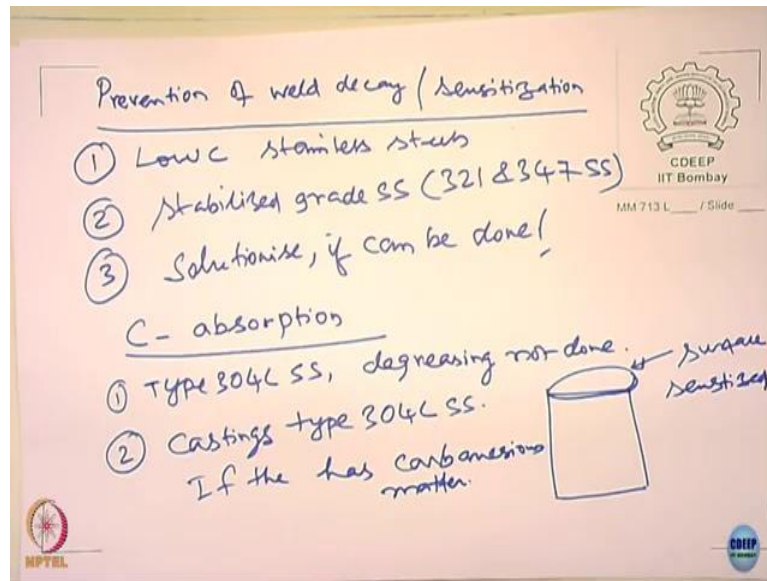 Prevention of weld decay / sensitization
① Low C stainless steels
② Stabilised grade SS (321 & 347 SS)
③ Solutionise, if can be done!
C - absorption
① Type 304L SS, degreasing not done.
② Castings type 304L SS.
If the has carbonesious
matter.
surface
sensitized
CDEEP
IIT Bombay
MM 713 L____ / Slide ____
NPTEL
CDEEP
IIT BOMBAY